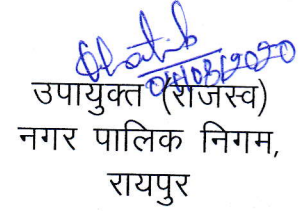 04/03/2020
उपायुक्त (राजस्व)
नगर पालिक निगम,
रायपुर